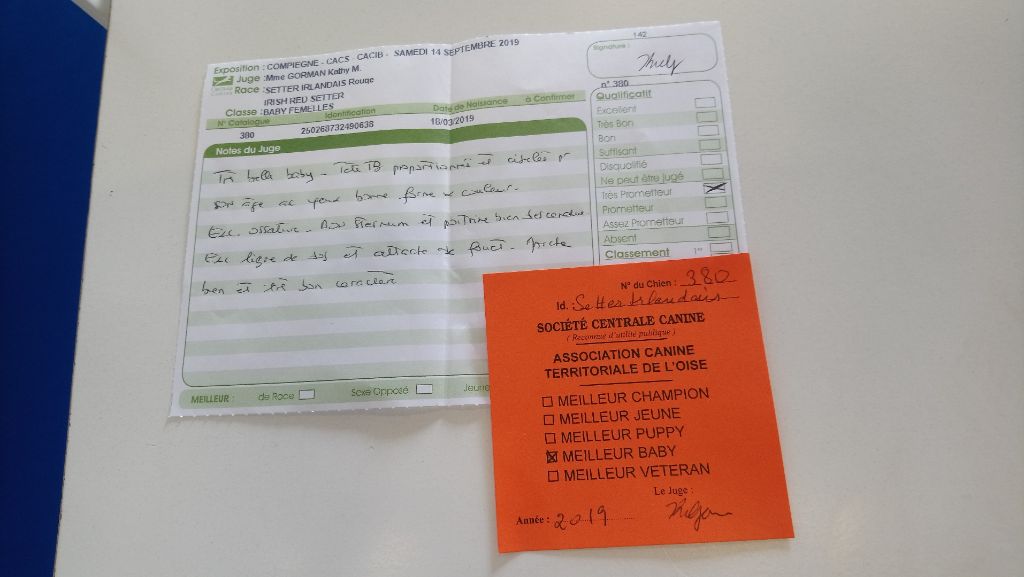 142
Exposition : COMPIEGNE - CACS - CACIB - SAMEDI 14 SEPTEMBRE 2019
Juge : Mme GORMAN Kathy M.
Race : SETTER IRLANDAIS Rouge
IRISH RED SETTER
Classe : BABY FEMELLES
N° Catalogue Identification Date de Naissance à Confirmer
380 250268732490638 18/03/2019
Notes du Juge
Très belle baby - Tête TB proportionnée et ciselée pr
son âge ac yeux bonne forme & couleur.
Exc. ossature. Bon sternum et poitrine bien descendue
Exc ligne de dos et attache de fouet. Marche
bien et très bon caractère
MEILLEUR : de Race Sexe Opposé Jeune
Signature :
n° 380
Qualificatif
Excellent
Très Bon
Bon
Suffisant
Disqualifié
Ne peut être jugé
Très Prometteur
Prometteur
Assez Prometteur
Absent
Classement 1er
N° du Chien : 380
Id. : Setter Irlandais
SOCIÉTÉ CENTRALE CANINE
( Reconnue d'utilité publique )
ASSOCIATION CANINE
TERRITORIALE DE L'OISE
MEILLEUR CHAMPION
MEILLEUR JEUNE
MEILLEUR PUPPY
MEILLEUR BABY
MEILLEUR VETERAN
Le Juge :
Année : 2019